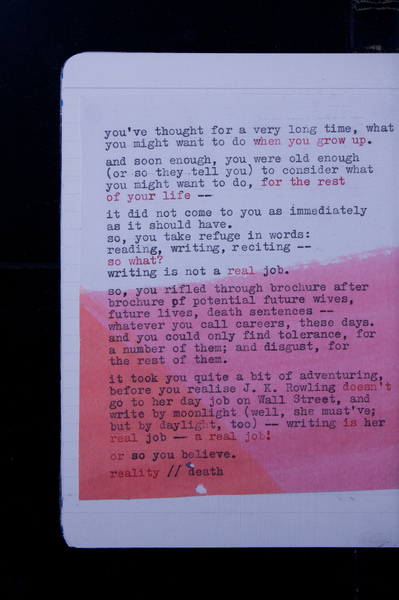 you've thought for a very long time, what
you might want to do when you grow up.
and soon enough, you were old enough
(or so they tell you) to consider what
you might want to do, for the rest
of your life --
it did not come to you as immediately
as it should have.
so, you take refuge in words:
reading, writing, reciting --
so what?
writing is not a real job.
so, you rifled through brochure after
brochure of potential future wives,
future lives, death sentences --
whatever you call careers, these days.
and you could only find tolerance, for
a number of them; and disgust, for
the rest of them.
it took you quite a bit of adventuring,
before you realise J. K. Rowling doesn't
go to her day job on Wall Street, and
write by moonlight (well, she must've;
but by daylight, too) -- writing is her
real job -- a real job!
or so you believe.
reality // death